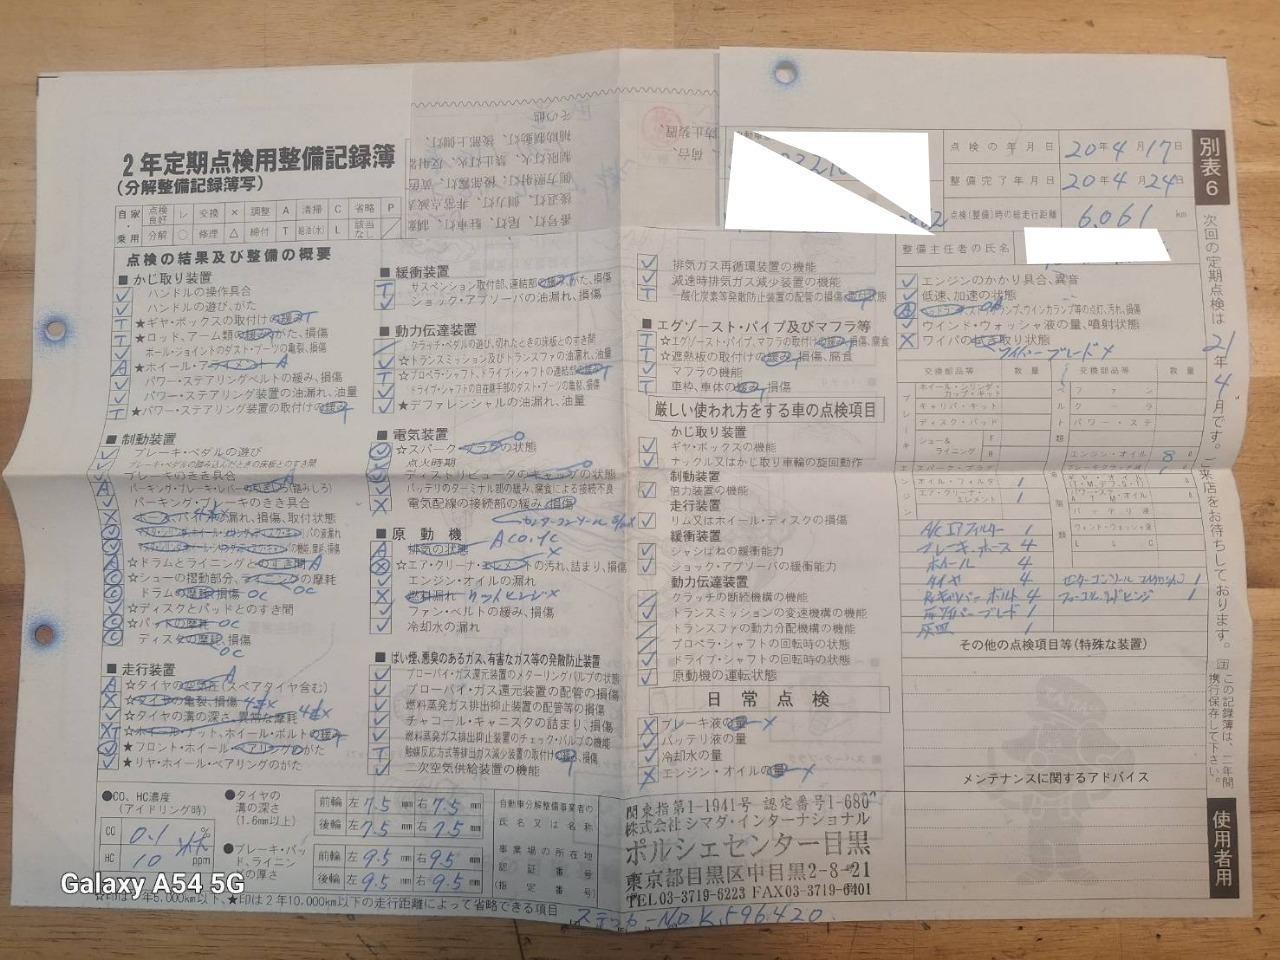 2年定期点検用整備記録簿
(分解整備記録簿写)
自家・乗用
点検良好 レ 交換 × 調整 A 清掃 C 省略 P
分解 ○ 修理 △ 締付 T 給油(水) L 該当なし /
点検の結果及び整備の概要
■かじ取り装置
ハンドルの操作具合
ハンドルの遊び、がた
★ギヤ・ボックスの取付けの緩み
★ロッド、アーム類の緩み、がた、損傷
ボール・ジョイントのダスト・ブーツの亀裂、損傷
★ホイール・アライメント A
パワー・ステアリングベルトの緩み、損傷
パワー・ステアリング装置の油漏れ、油量
★パワー・ステアリング装置の取付けの緩み
■制動装置
ブレーキ・ペダルの遊び
ブレーキ・ペダルの踏み込んだときの床板とのすき間
ブレーキのきき具合
パーキング・ブレーキ・レバーの引きしろ(踏みしろ)
パーキング・ブレーキのきき具合
ホース、パイプの漏れ、損傷、取付状態
☆ドラムとライニングとのすき間
☆シューの摺動部分、ライニングの摩耗
ドラムの摩耗、損傷
☆ディスクとパッドとのすき間
☆パッドの摩耗
ディスクの摩耗、損傷
■走行装置
☆タイヤの空気圧(スペアタイヤ含む)
☆タイヤの亀裂、損傷
☆タイヤの溝の深さ、異常な摩耗
☆ホイール・ナット、ホイール・ボルトの緩み
★フロント・ホイール・ベアリングのがた
★リヤ・ホイール・ベアリングのがた
■緩衝装置
サスペンション取付部、連結部の緩み、がた、損傷
ショック・アブソーバの油漏れ、損傷
■動力伝達装置
クラッチ・ペダルの遊び、切れたときの床板とのすき間
☆トランスミッション及びトランスファの油漏れ、油量
☆プロペラ・シャフト、ドライブ・シャフトの連結部の緩み
ドライブ・シャフトの自在継手部のダスト・ブーツの亀裂、損傷
★デファレンシャルの油漏れ、油量
■電気装置
☆スパーク・プラグの状態
点火時期
ディストリビュータのキャップの状態
バッテリのターミナル部の緩み、腐食による接続不良
電気配線の接続部の緩み、損傷
■原動機
排気の状態 A CO、HC
☆エア・クリーナ・エレメントの汚れ、詰まり、損傷
エンジン・オイルの漏れ
燃料漏れ
ファン・ベルトの緩み、損傷
冷却水の漏れ
■ばい煙、悪臭のあるガス、有害なガス等の発散防止装置
ブローバイ・ガス還元装置のメターリングバルブの状態
ブローバイ・ガス還元装置の配管の損傷
燃料蒸発ガス排出抑止装置の配管等の損傷
チャコール・キャニスタの詰まり、損傷
燃料蒸発ガス排出抑止装置のチェック・バルブの機能
触媒反応方式等排出ガス減少装置の取付けの緩み、損傷
二次空気供給装置の機能
排気ガス再循環装置の機能
減速時排気ガス減少装置の機能
一酸化炭素等発散防止装置の配管の損傷、取付状態
■エグゾースト・パイプ及びマフラ等
☆エグゾースト・パイプ、マフラの取付けの緩み、損傷、腐食
☆遮熱板の取付けの緩み、損傷、腐食
マフラの機能
車枠、車体の緩み、損傷
厳しい使われ方をする車の点検項目
かじ取り装置
ギヤ・ボックスの機能
ナックル又はかじ取り車輪の旋回動作
制動装置
倍力装置の機能
走行装置
リム又はホイール・ディスクの損傷
緩衝装置
シャシばねの緩衝能力
ショック・アブソーバの緩衝能力
動力伝達装置
クラッチの断続機構の機能
トランスミッションの変速機構の機能
トランスファの動力分配機構の機能
プロペラ・シャフトの回転時の状態
ドライブ・シャフトの回転時の状態
原動機の運転状態
日常点検
ブレーキ液の量 ×
バッテリ液の量
冷却水の量
エンジン・オイルの量 ×
点検の年月日 20年4月17日
整備完了年月日 20年4月24日
点検(整備)時の総走行距離 6,061 km
整備主任者の氏名
エンジンのかかり具合、異音
低速、加速の状態
ウインド・ウォッシャ液の量、噴射状態
ワイパの拭き取り状態
ワイパーブレード×
交換部品等 数量 交換部品等 数量
ホイール・シリンダ・カップ・キット ファン
キャリパ・キット クーラ
ディスク・パッド パワー・ステ
シュー&ライニング F
R エンジン・オイル 8
スパーク・プラグ
オイル・フィルタ 1
エア・クリーナ・エレメント 1
バッテリ液
ウィンド・ウォッシャ液
L L C
A/Cエアフィルター 1
ブレーキ・ホース 4
ホイール 4
タイヤ 4
キャリパーボルト 4
灰皿 1
その他の点検項目等(特殊な装置)
メンテナンスに関するアドバイス
別表6
次回の定期点検は21年4月です。ご来店をお待ちしております。
この記録簿は、二年間携行保存して下さい。
使用者用
●CO、HC濃度
(アイドリング時)
CO 0.1 %
HC 10 ppm
●タイヤの溝の深さ
(1.6mm以上)
前輪 左 7.5 mm 右 7.5 mm
後輪 左 7.5 mm 右 7.5 mm
●ブレーキ・パッド、ライニングの厚さ
前輪 左 9.5 mm 右 9.5 mm
後輪 左 9.5 mm 右 9.5 mm
自動車分解整備事業者の氏名又は名称
事業場の所在地
認証番号
(指定番号)
関東指第1-1941号 認定番号1-680
株式会社シマダ・インターナショナル
ポルシェセンター目黒
東京都目黒区中目黒2-8-21
TEL03-3719-6223 FAX03-3719-6401
☆印は1年5,000km以下、★印は2年10,000km以下の走行距離によって省略できる項目
ステッカーNO.K596420
Galaxy A54 5G